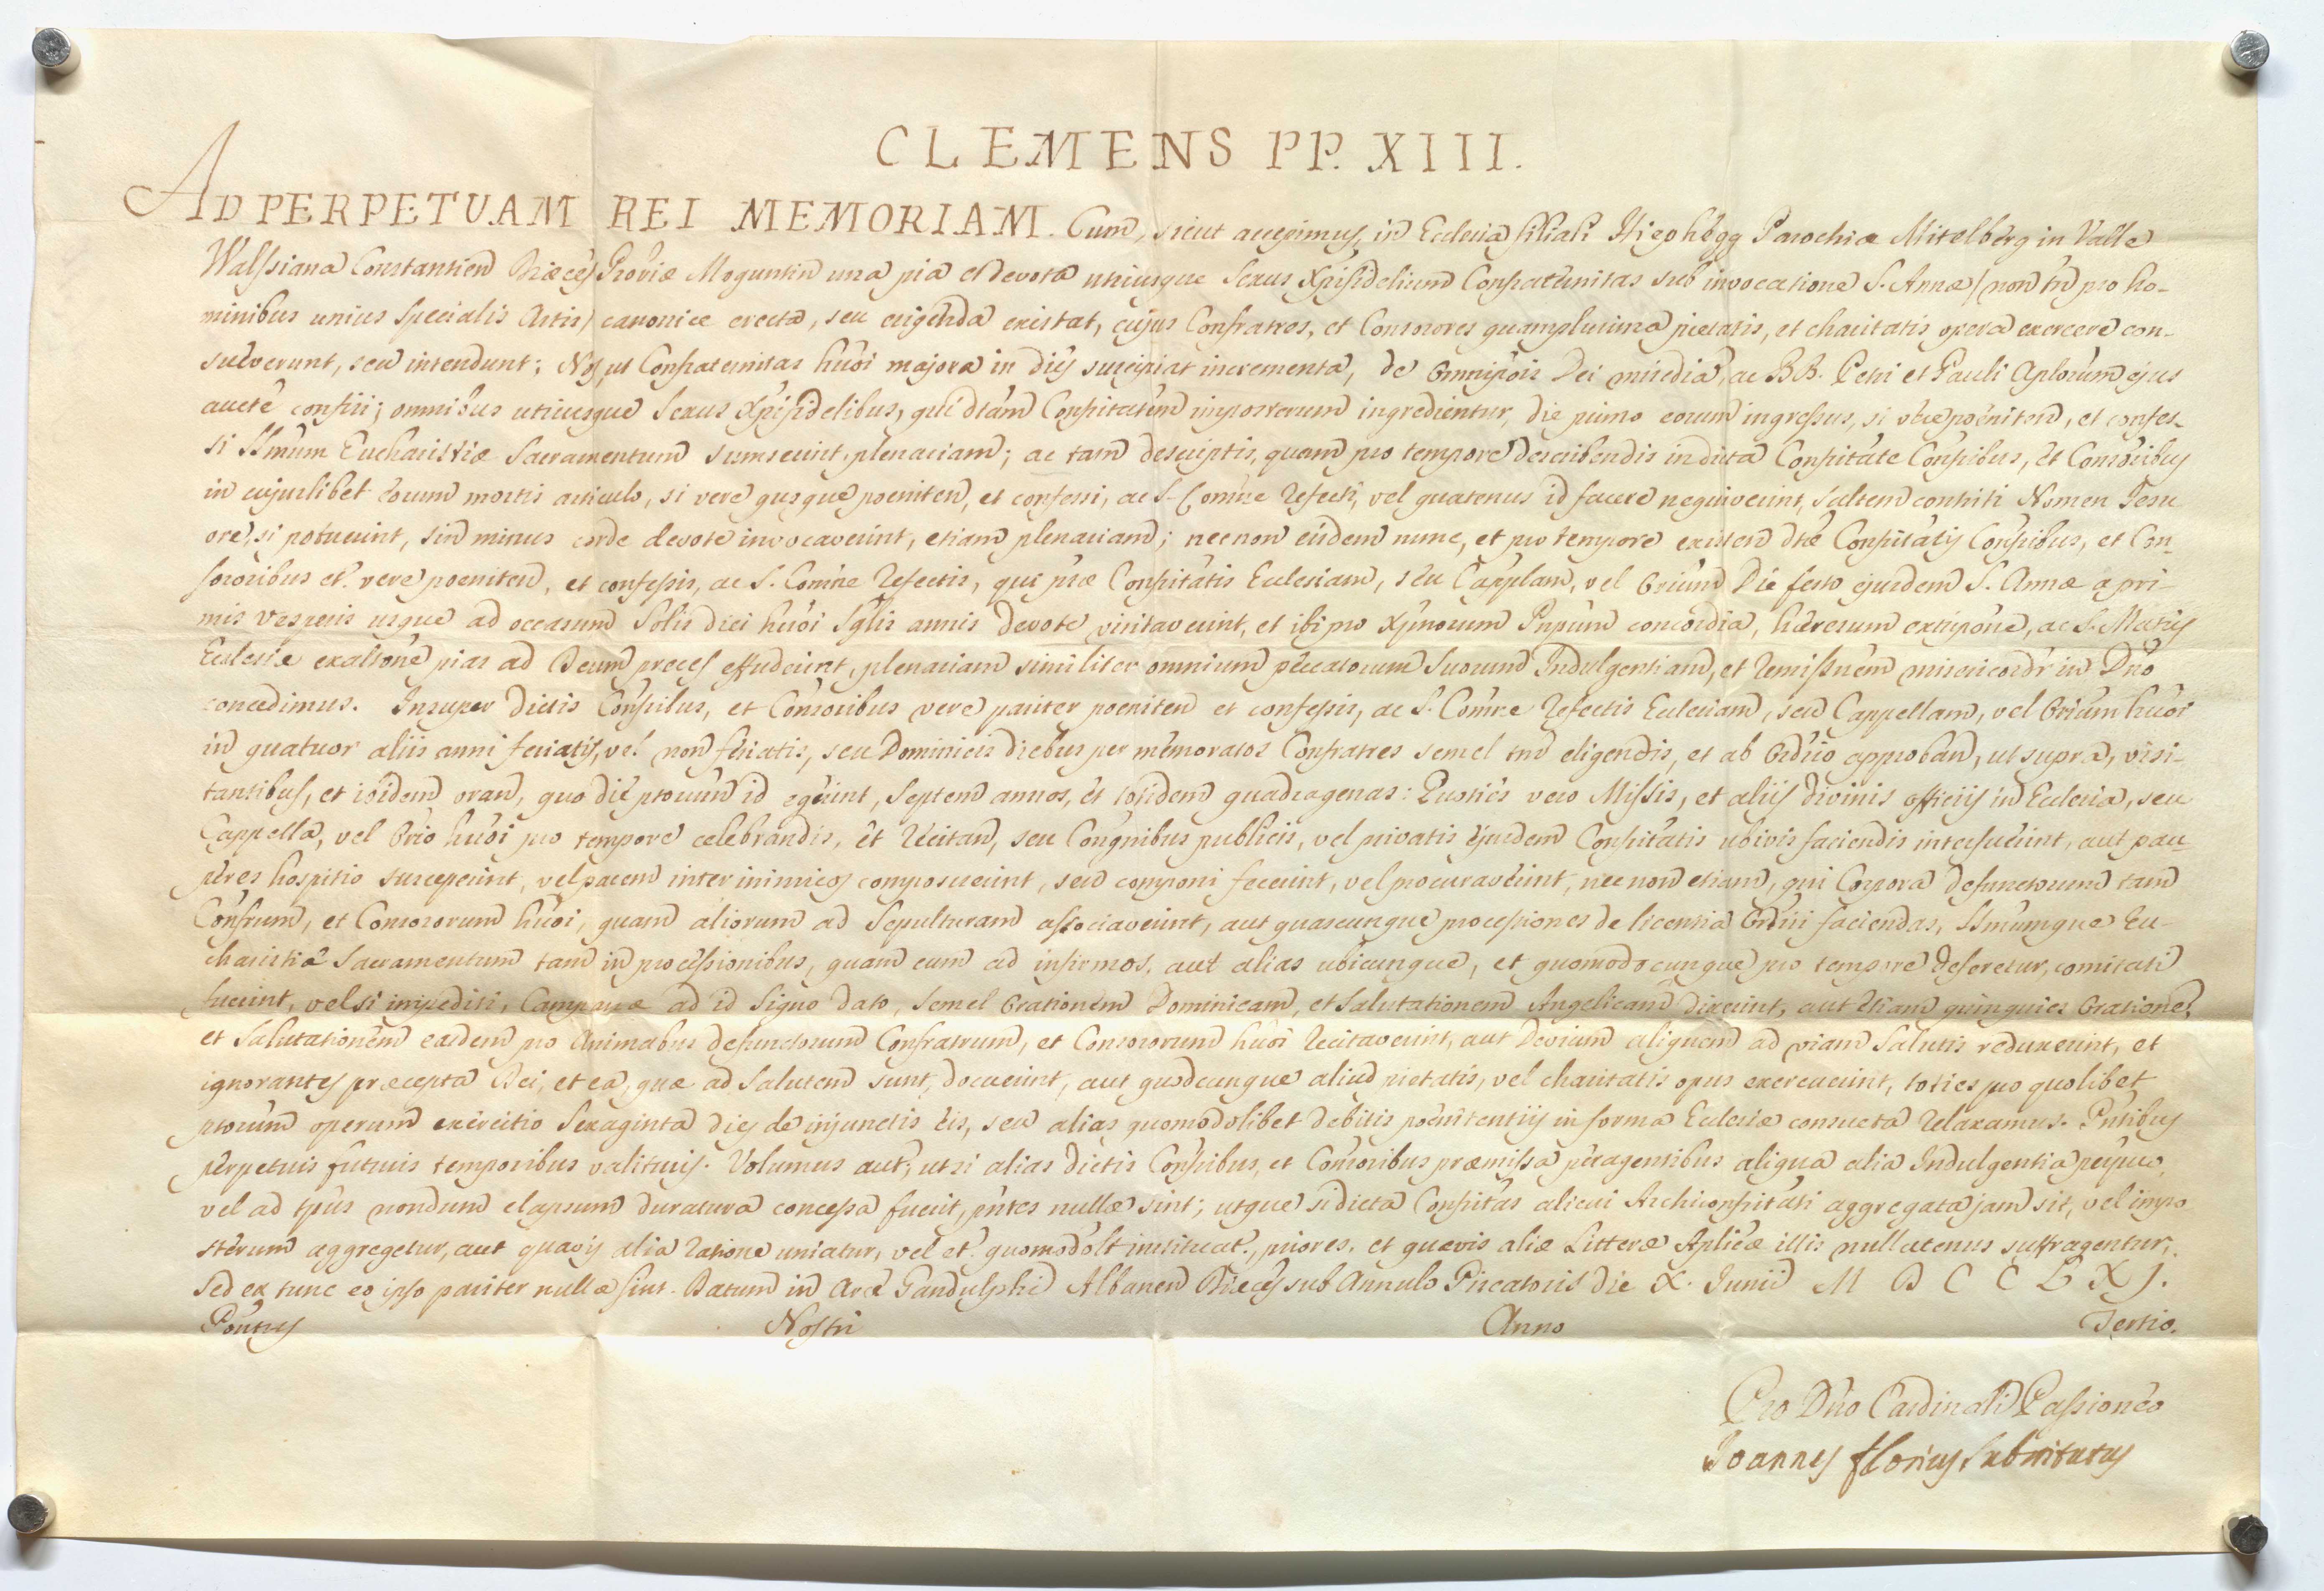 CLEMENS PP. XIII.
AD PERPETUAM REI MEMORIAM. Cum, sicut accepimus, in Ecclesia filiali Hirschegg Parochiæ Mitelberg in Valle
Walssiana Constantien Diæces Proviæ Moguntin una pia et devota utriusque Sexus Xpifidelium Confraternitas sub invocatione S. Annæ (non tn pro ho-
minibus unius specialis Artis) canonice erecta, seu erigenda existat, cujus Confratres, et Consorores quamplurima pietatis, et charitatis opera exercere con-
sueverunt, seu intendunt; Nos, ut Confraternitas hu̅oi majora in dies suscipiat incrementa, de Omnipo̅is Dei mise̅dia, ac BB. Petri et Pauli Aplorum ejus
aucte̅ confisi; omnibus utriusque Sexus Xpifidelibus, qui dtam Confritatem inposterum ingredientur, die primo eorum ingressus, si vere poeniten, et confes-
si Ssmum Eucharistiæ Sacramentum sumserint, plenariam; ac tam descriptis, quam pro tempore describendis in dicta Confritate Confribus, et Consoribus
in cujuslibet eorum mortis articulo, si vere quoque poeniten, et confessi, ac S. Comne refecti, vel quatenus id facere nequiverint, saltem contriti Nomen Jesu
ore, si potuerint, sin minus corde devote invocaverint, etiam plenariam; necnon eisdem nunc, et pro tempore existen dtæ Confritatis Confribus, et Con-
sororibus et. vere poeniten, et confessis, ac S. Comne refectis, qui præ Confritatis Ecclesiam, seu Cappellam, vel Orium Die festo ejusdem S. Annæ a pri-
mis vesperis usque ad occasum Solis diei hu̅oi Sglis annis devote visitaverint, et ibi pro Xpinorum Pnpum concordia, hæresum extirpone, ac S. Matris
Ecclesiæ exaltone pias ad Deum preces effuderint, plenariam similiter omnium peccatorum suorum Indulgentiam, et remissnem misericordr in Dno
concedimus. Insuper dictis Confribus, et Consoribus vere pariter poeniten et confessis, ac S. Comne refectis Ecclesiam, seu Cappellam, vel Orium hu̅oi
in quatuor aliis anni feriatis, vel non feriatis, seu Dominicis diebus per memoratos Confratres semel tnm eligendis, et ab Ordrio approban, ut supra, visi-
tantibus, et ibidem oran, quo die ptorum id egerint, Septem annos, et totidem quadragenas: Quoties vero Missis, et aliis divinis officiis in Ecclesia, seu
Cappella, vel Orio hu̅oi pro tempore celebrandis, et recitan, seu Congnibus publicis, vel privatis ejusdem Confritatis ubivis faciendis interfuerint, aut pau
peres hospitio susceperint, vel pacem inter inimicos composuerint, seu componi fecerint, vel procuraverint, necnon etiam, qui Corpora defunctorum tam
Confrum, et Consororum hu̅oi, quam aliorum ad sepulturam associaverint, aut quascunque processiones de licentia Ordrii faciendas, Ssmumque Eu-
charistiæ Sacramentum tam in processionibus, quam cum ad infirmos, aut alias ubicunque, et quomodocunque pro tempore deferetur, comitati
fuerint, vel si impediti, Campanæ ad id signo dato, semel Orationem Dominicam, et Salutationem Angelicam dixerint, aut etiam quinquies Oratione,
et Salutationem easdem pro Animabus defunctorum Confratrum, et Consororum hu̅oi recitaverint, aut Devium aliquem ad viam Salutis reduxerint, et
ignorantes præcepta Dei, et ea, quæ ad Salutem sunt, docuerint, aut quodcunque aliud pietatis, vel charitatis opus exercuerint, toties pro quolibet
ptorum operum exercitio Sexaginta dies de injunctis eis, seu alias quomodolibet debitis poenitentiis in forma Ecclesiæ consueta relaxamus. Pntibus
perpetuis futuris temporibus valituris. Volumus aut, ut si alias dictis Confribus, et Consoribus præmissa peragentibus aliqua alia Indulgentia perpuo,
vel ad tpus nondum elapsum duratura concessa fuerit, pntes nullæ sint; utque si dicta Confritas alicui Archiconfritati aggregata jam sit, vel inpo
sterum aggregetur, aut quavis alia ratione uniatur, vel et. quomodolt instituat., priores, et quævis aliæ Litteræ Aplicæ illis nullatenus suffragentur;
sed ex tunc eo ipso pariter nullæ sint. Datum in Arce Gandulphi Albanen Diæces sub Annulo Piscatoris die X. Junii MDCCLXJ.
Pontus Nostri Anno Tertio.
Pro Dno Cardinali Passioneo
Joannes Florius Substitutus